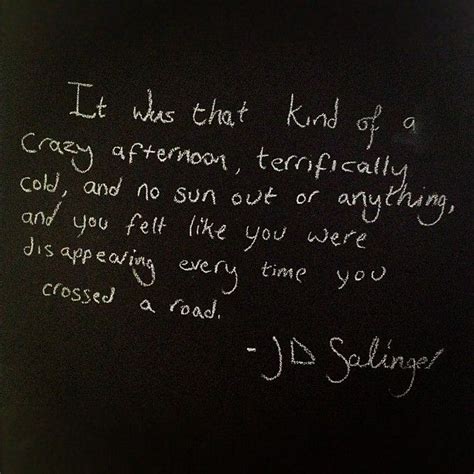 It was that kind of a
crazy afternoon, terrifically
cold, and no sun out or anything,
and you felt like you were
disappearing every time you
crossed a road.
- JD Salinger